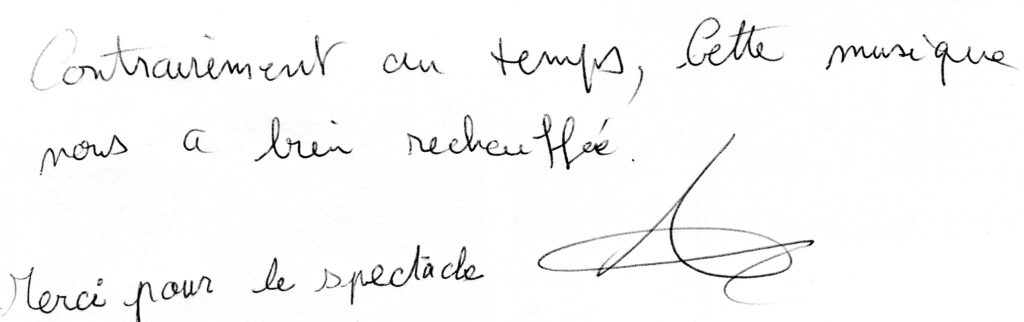 Contrairement au temps, Cette musique
nous a bien recheuffée.
Merci pour le spectacle